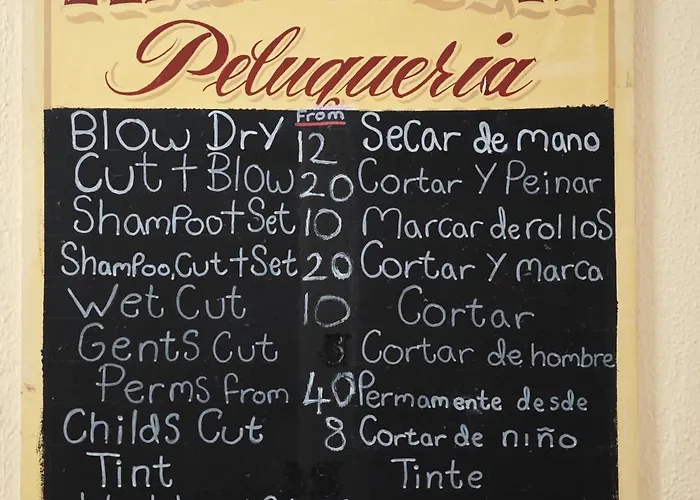 Peluqueria
From
Blow Dry 12 Secar de mano
Cut + Blow 20 Cortar Y Peinar
Shampoo + Set 10 Marcar de rollos
Shampoo, Cut + Set 20 Cortar Y marca
Wet Cut 10 Cortar
Gents Cut Cortar de hombre
Perms from 40 Permamente desde
Childs Cut 8 Cortar de niño
Tint Tinte